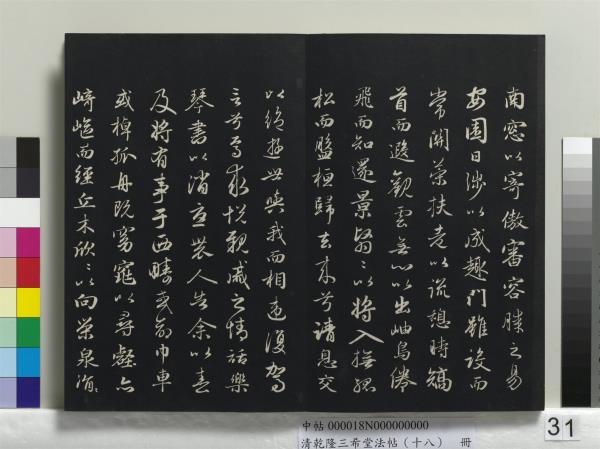 南窓以寄傲審容膝之易
安園日涉以成趣門雖設而
常關策扶老以流憩時矯
首而遐觀雲無心以出岫鳥倦
飛而知還景翳〻以將入撫孤
松而盤桓歸去來兮請息交
以絶遊世與我而相違復駕
言兮焉求悅親戚之情話樂
琴書以消憂農人告余以春
及將有事于西疇或命巾車
或棹孤舟既窈窕以尋壑亦
崎嶇而經丘木欣〻以向榮泉涓〻
中帖 000018N000000000
清乾隆三希堂法帖（十八） 冊
31